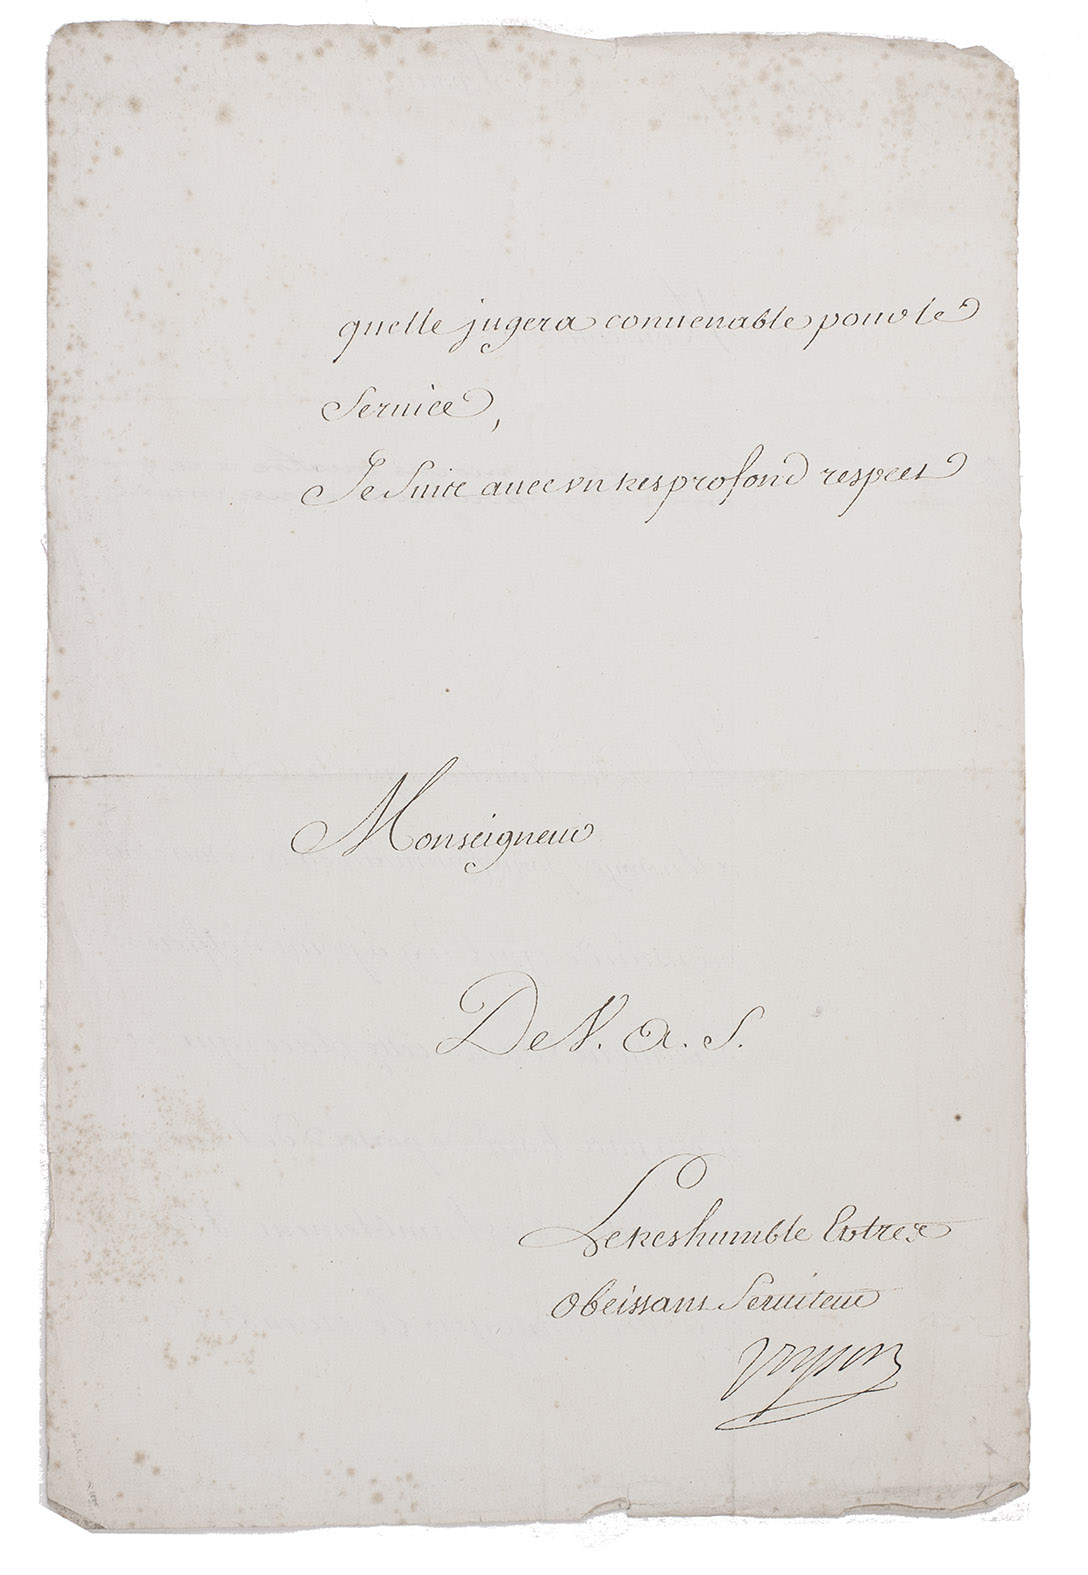 quelle jugera convenable pour le
Service,
Je suis avec un tres profond respect
Monseigneur
De V. A. S.
Le tres humble Et tres
Obeissant Serviteur